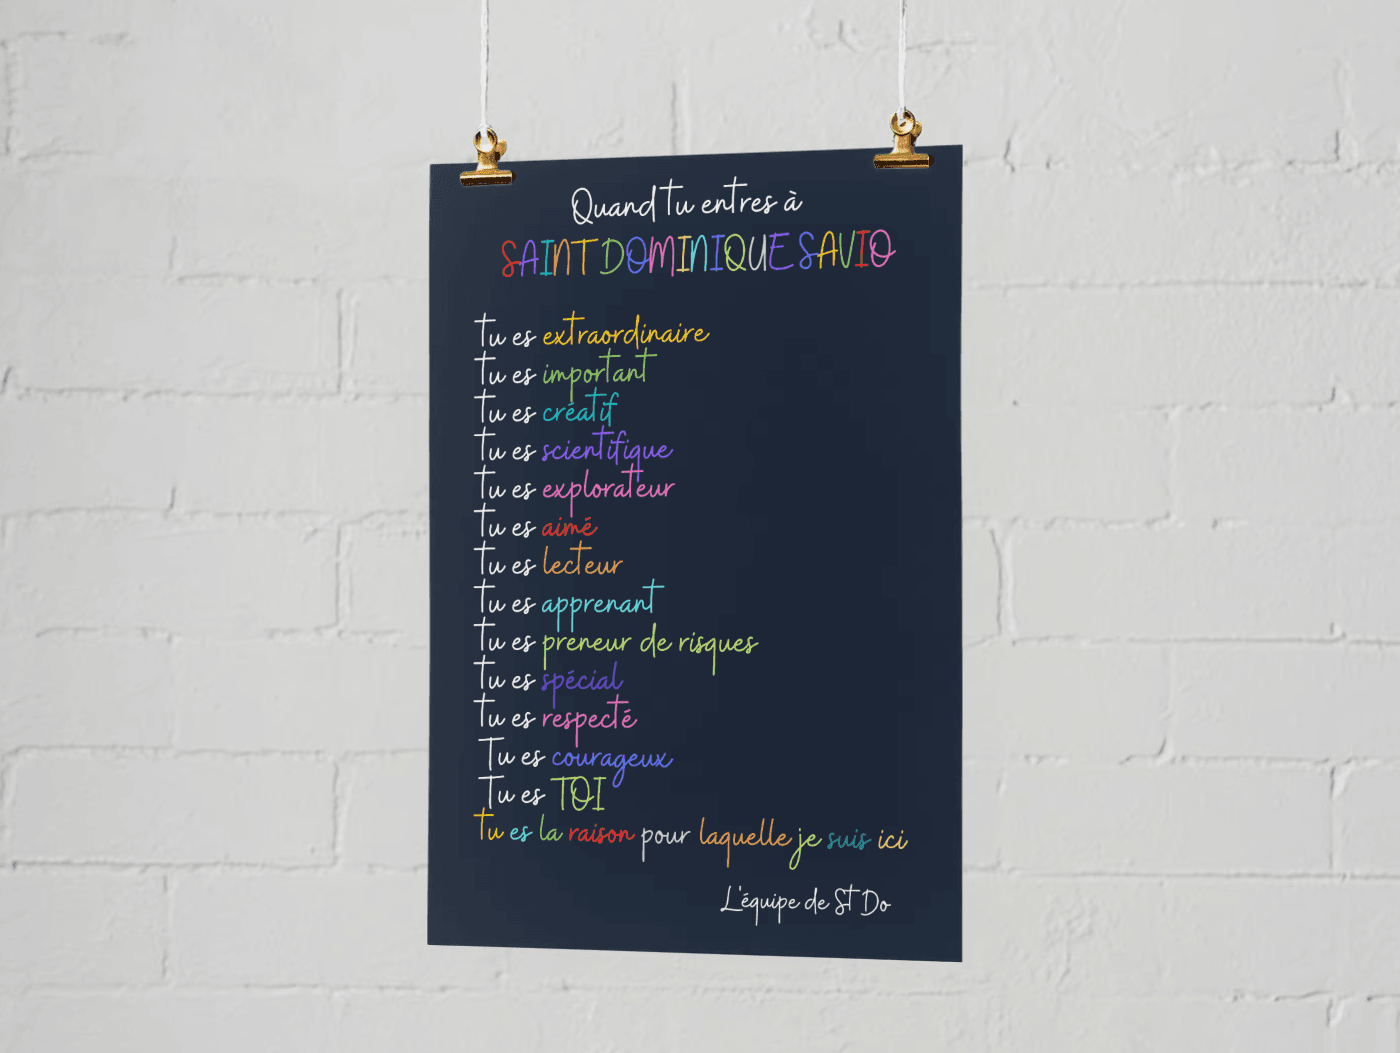 Quand tu entres à
SAINT DOMINIQUE SAVIO
tu es extraordinaire
tu es important
tu es créatif
tu es scientifique
tu es explorateur
tu es aimé
tu es lecteur
tu es apprenant
tu es preneur de risques
tu es spécial
tu es respecté
Tu es courageux
Tu es TOI
tu es la raison pour laquelle je suis ici
L'équipe de St Do